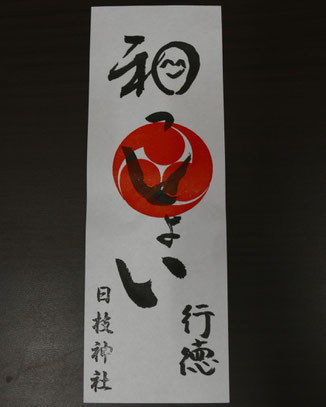 和っしょい
行徳
日枝神社